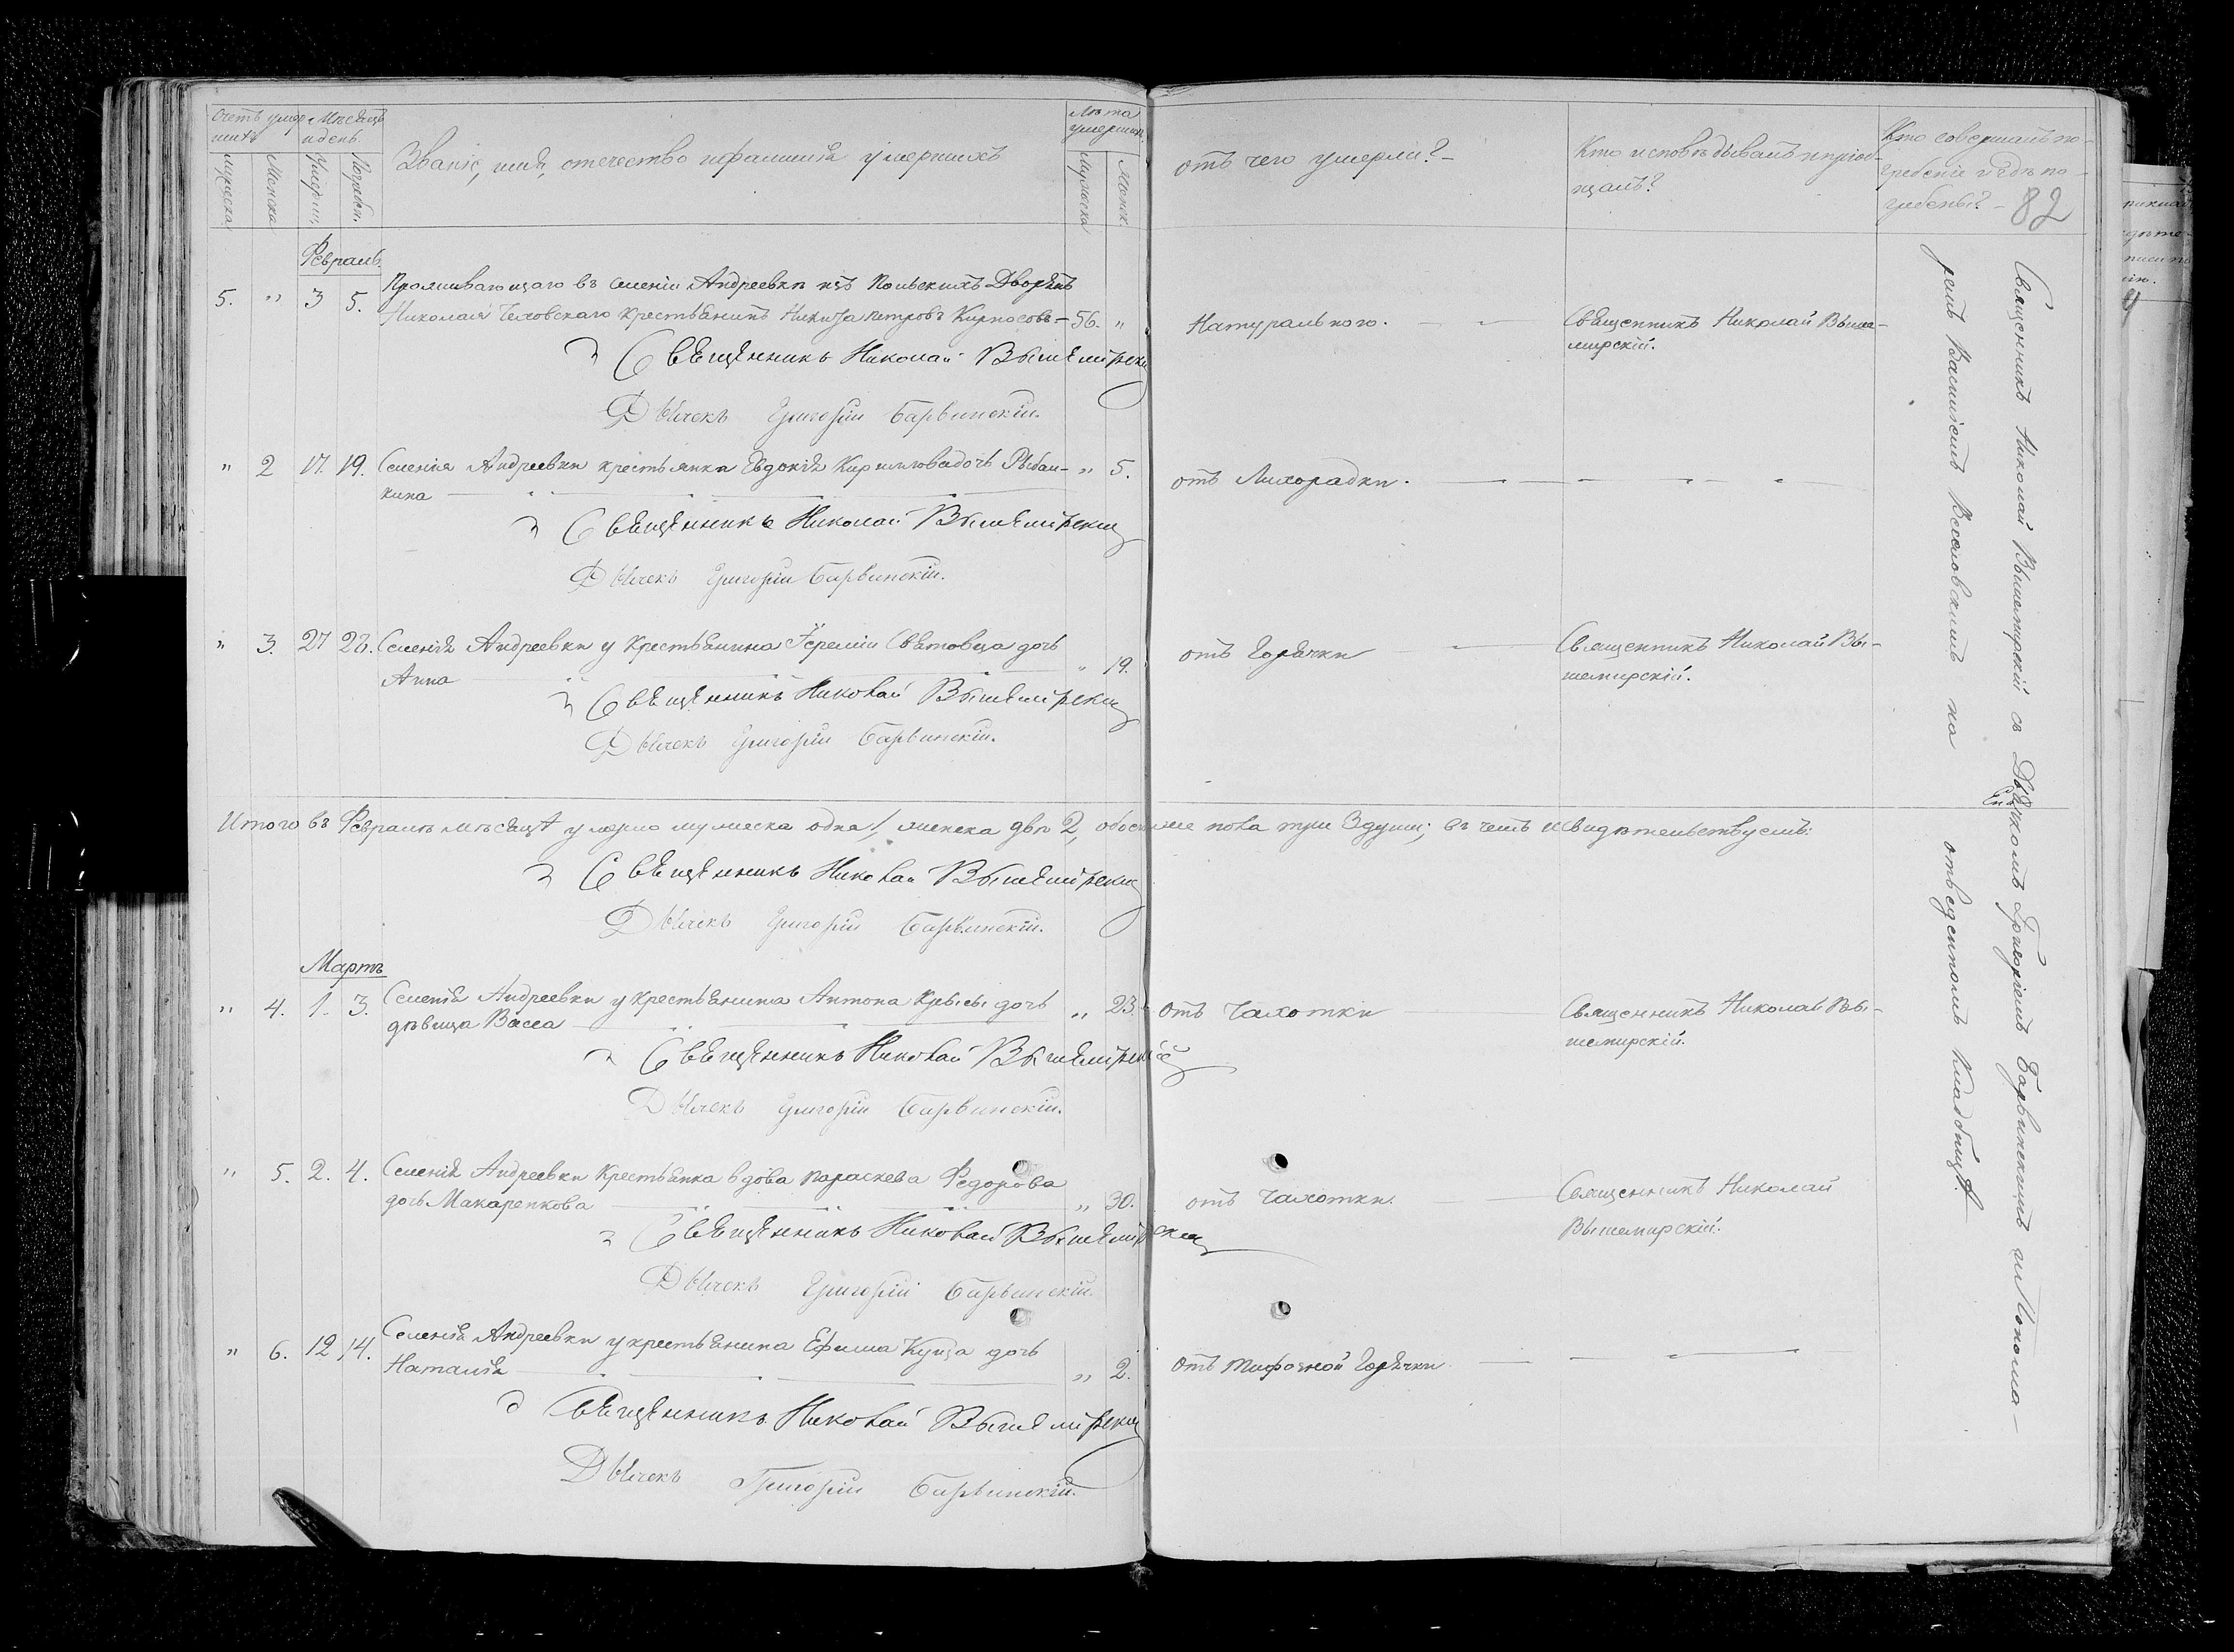 Счетъ умер-
шихъ
Мѣсяцъ
и день.
Мужеска
Женска
Умерли,
Погребен.
Званіе, имя, отечество и фамилія умершихъ
Лѣта
умершихъ
Мужеска
Женск.
отъ чего умерли?
Кто исповѣдывалъ и пріоб-
щалъ?
Кто совершалъ по-
гребеніе и гдѣ по-
гребены?
82
Февраль.
5. " 3 5. Проживающаго въ селеніи Андреевки изъ Польскихъ Дворянъ
Николая крестьянинъ Никита Петровъ Кирносовъ 56. "
Натурального.
Священникъ Николай Выше-
мирскій.
Священникъ Николай Вышемірскій
Дьячекъ Григорій Барвинскій.
" 2 17. 19. Селенія Андреевки крестьянка Евдокія Кириллова дочь Рыбал-
кина " 5.
отъ Лихорадки.
Священникъ Николай Вышемірскій
Дьячекъ Григорій Барвинскій.
" 3. 27 28. Селенія Андреевки у крестьянина Іеремии Святовца дочь
Анна " 19.
отъ Горячки
Священникъ Николай Вы-
шемирскій.
Священникъ Николай Вышемірскій
Дьячекъ Григорій Барвинскій.
Итого въ Февралѣ мѣсяцѣ умерло мужеска одна 1, женска двѣ 2, обоего же пола три 3 души; въ чемъ и свидѣтельствуемъ:
Священникъ Николай Вышемірскій
Дьячекъ Григорій Барвинскій.
Мартъ
" 4. 1. 3. Селенія Андреевки у крестьянина Антона Крысы дочь
дѣвица Васса " 23.
отъ Чахотки
Священникъ Николай Вы-
шемирскій.
Священникъ Николай Вышемірскій
Дьячекъ Григорій Барвинскій.
" 5. 2. 4. Селенія Андреевки Крестьянка вдова Параскева Федорова
дочь Макаренкова " 30.
отъ Чахотки.
Священникъ Николай
Вышемирскій.
Священникъ Николай Вышемірскій
Дьячекъ Григорій Барвинскій.
" 6. 12 14. Селенія Андреевки у крестьянина Ефима Куца дочь
Наталія " 2.
отъ тифозной Горячки
Священникъ Николай Вышемірскій
Дьячекъ Григорій Барвинскій.
Священникъ Николай Вышемирскій съ Дьячкомъ Григоріемъ Барвинскимъ и Понома-
ремъ Василіемъ Веселовскимъ на отведенномъ Кладбищѣ.